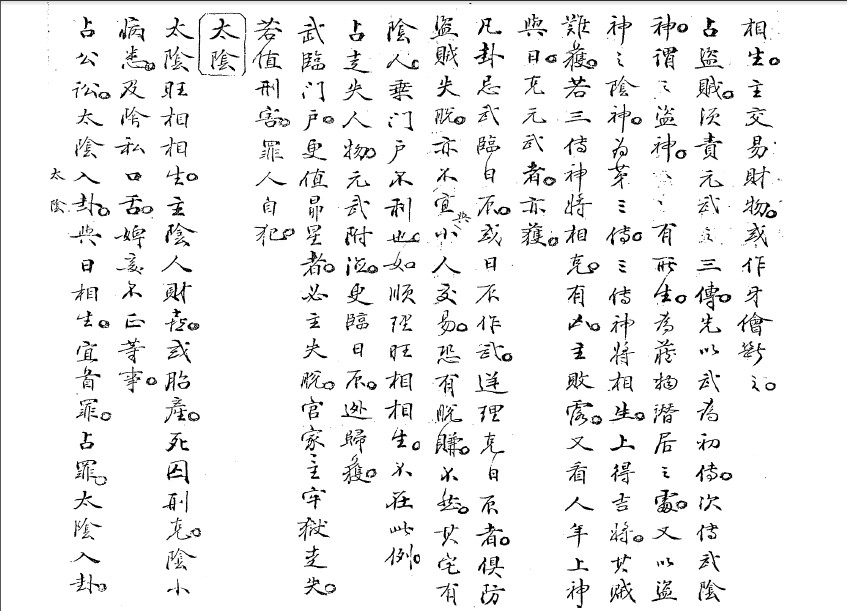 相生。主交易財物。或作牙儈斷之。
占盜賊。須責元武之三傳。先以武為初傳。次傳武陰
神。謂之盜神。盜神之有所生。為藏物潛居之處。又以盜
神之陰神。為第三傳。三傳神將相生。上得吉將。其賊
難獲。若三傳神將相克。有凶。主敗露。又看人年上神
與日。克元武者。亦獲。
凡卦忌武臨日辰。或日辰作武。逆理克日辰者。俱防
盜賊失脫。亦不宜與小人交易。恐有脫賺。不然。其宅有
陰人。乗门户不利也。如順理旺相相生。不在此例。
占走失人物。元武附江。更臨日辰。逃歸獲。
武臨门户。更值昴星者。必主失脫。官家主牢獄走失。
若值刑害。罪人自犯。
太陰
太陰旺相相生。主陰人財喜。或胎產。死囚刑克。陰小
病患。及陰私口舌。婢妾不正等事。
占公訟。太陰入卦。與日相生。宜首罪。占罪。太陰入卦。
太陰